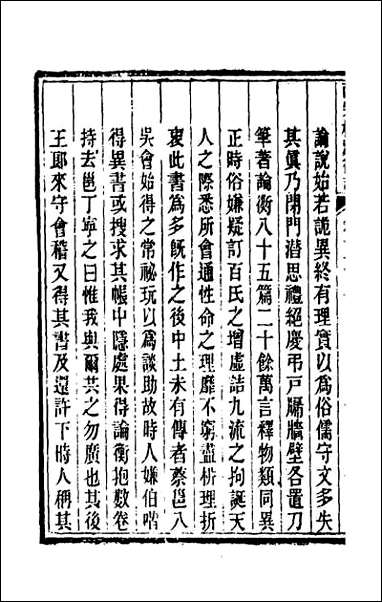 論說始若詭異終有理實以爲俗儒守文多失
其眞乃閉門潛思禮絕慶弔戸牖牆壁各置刀
筆著論衡八十五篇二十餘萬言釋物類同異
正時俗嫌疑訂百氏之增虛詰九流之拘誕天
人之際悉所會通性命之理靡不窮盡析理折
衷此書爲多既作之後中土未有傳者蔡邕入
吳會始得之常祕玩以爲談助故時人嫌伯喈
得異書或搜求其帳中隱處果得論衡抱數卷
持去邕丁寧之曰惟我與爾共之勿廣也其後
王郎來守會稽又得其書及還許下時人稱其